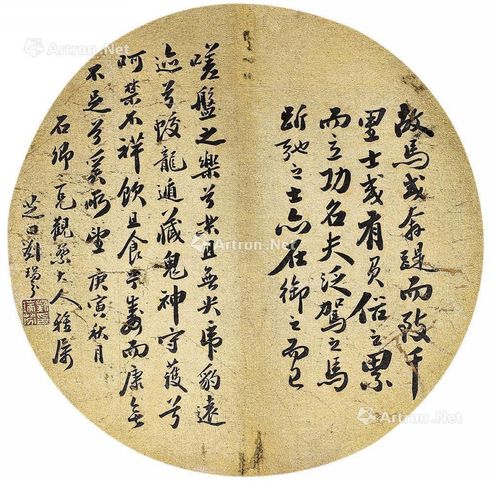 故馬或奔踶而致千
里士或有負俗之累
而立功名夫泛駕之馬
跅弛之士亦在御之而已
嗟盤之樂兮樂且無央虎豹遠
迹兮蛟龍遁藏鬼神守護兮
呵禁不祥飲且食兮壽而康無
不足兮奚所望 庚寅秋月
石卿二兄觀察大人雅屬
芝田劉瑞芬
Artron.Net
Artron.Net
Artron.Net
Artron.Net
Artron.Net